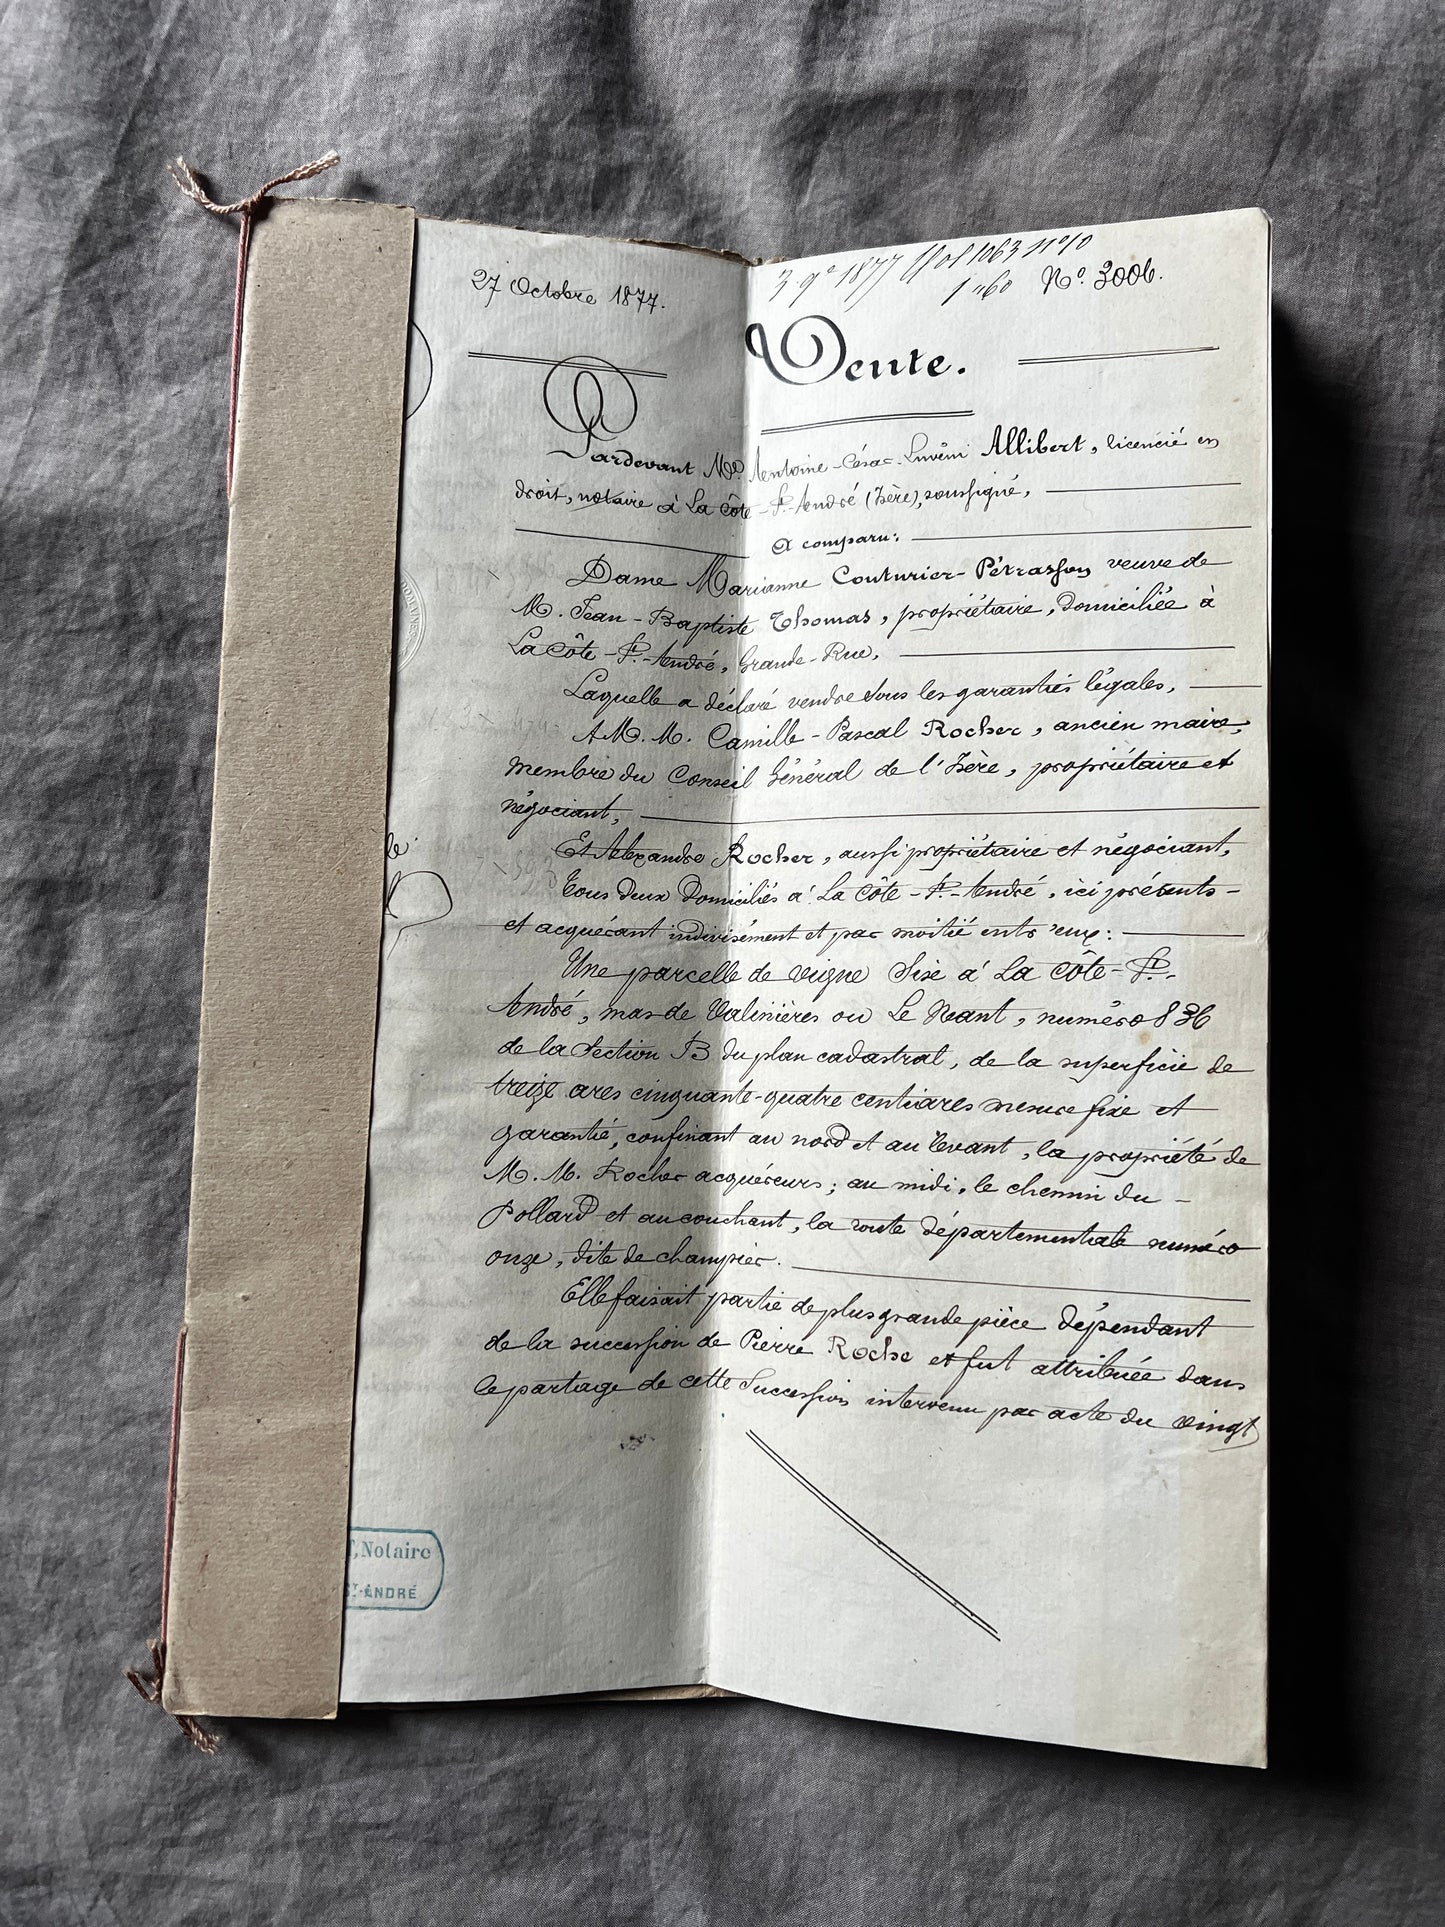 27 Octobre 1877.
3 9e 1877 1063 no10
1 "60 No. 3006.
Vente.
Pardevant Me. Antoine-César- Allibert, licencié en
droit, notaire à La Côte-St.-André (Isère), soussigné,
A comparu:
Dame Marianne Couturier-Pétrasson veuve de
M. Jean-Baptiste Thomas, propriétaire, domiciliée à
La Côte-St.-André, Grande-Rue,
Laquelle a déclaré vendre sous les garanties légales,
A M.M. Camille-Pascal Rocher, ancien maire,
membre du Conseil Général de l'Isère, propriétaire et
négociant,
Et Alexandre Rocher, aussi propriétaire et négociant,
Tous deux domiciliés à La Côte-St.-André, ici présents
et acquérant indivisément et par moitié entr'eux:
Une parcelle de vigne sise à La Côte-St.-
André, mas de Valinières ou Le Neant, numéro 836
de la Section B du plan cadastral, de la superficie de
treize ares cinquante-quatre centiares mesure fixe et
garantie, confinant au nord et au levant, la propriété de
M.M. Rocher acquéreurs; au midi, le chemin du
Pollard et au couchant, la route départementale numéro
onze, dite de champier.
Elle faisait partie de plus grande pièce dépendant
de la succession de Pierre Roche et fut attribuée dans
le partage de cette Succession intervenu par acte du vingt
, Notaire
St-ANDRÉ